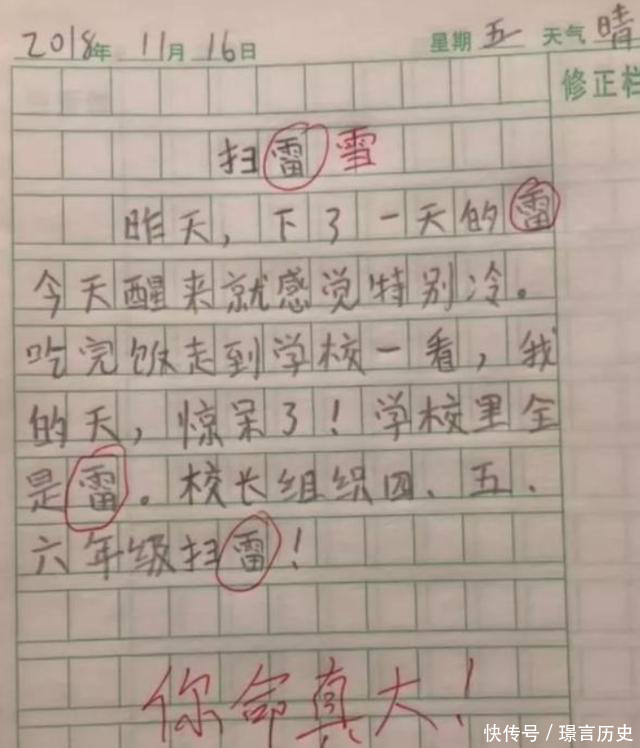 2018年 11月 16日 星期五 天气晴
修正栏
扫雷雪
昨天，下了一天的雷
今天醒来就感觉特别冷。
吃完饭走到学校一看，我
的天，惊呆了！学校里全
是雷。校长组织四、五、
六年级扫雷！
你命真大！
快传号／璟言历史